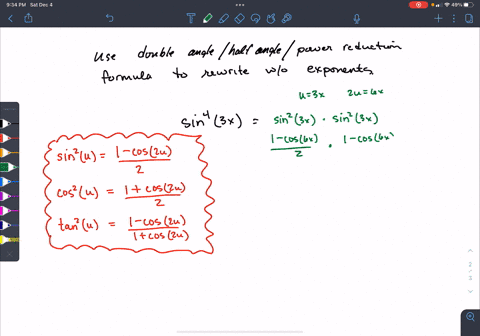 9:34 PM Sat Dec 4
49%
Use double angle/half angle/power reduction
formula to rewrite w/o exponents
u=3x 2u=6x
sin⁴(3x) = sin²(3x) · sin²(3x)
(1-cos(6x))/2 · 1-cos(6x)
sin²(u) = (1-cos(2u))/2
cos²(u) = (1+cos(2u))/2
tan²(u) = (1-cos(2u))/(1+cos(2u))
2